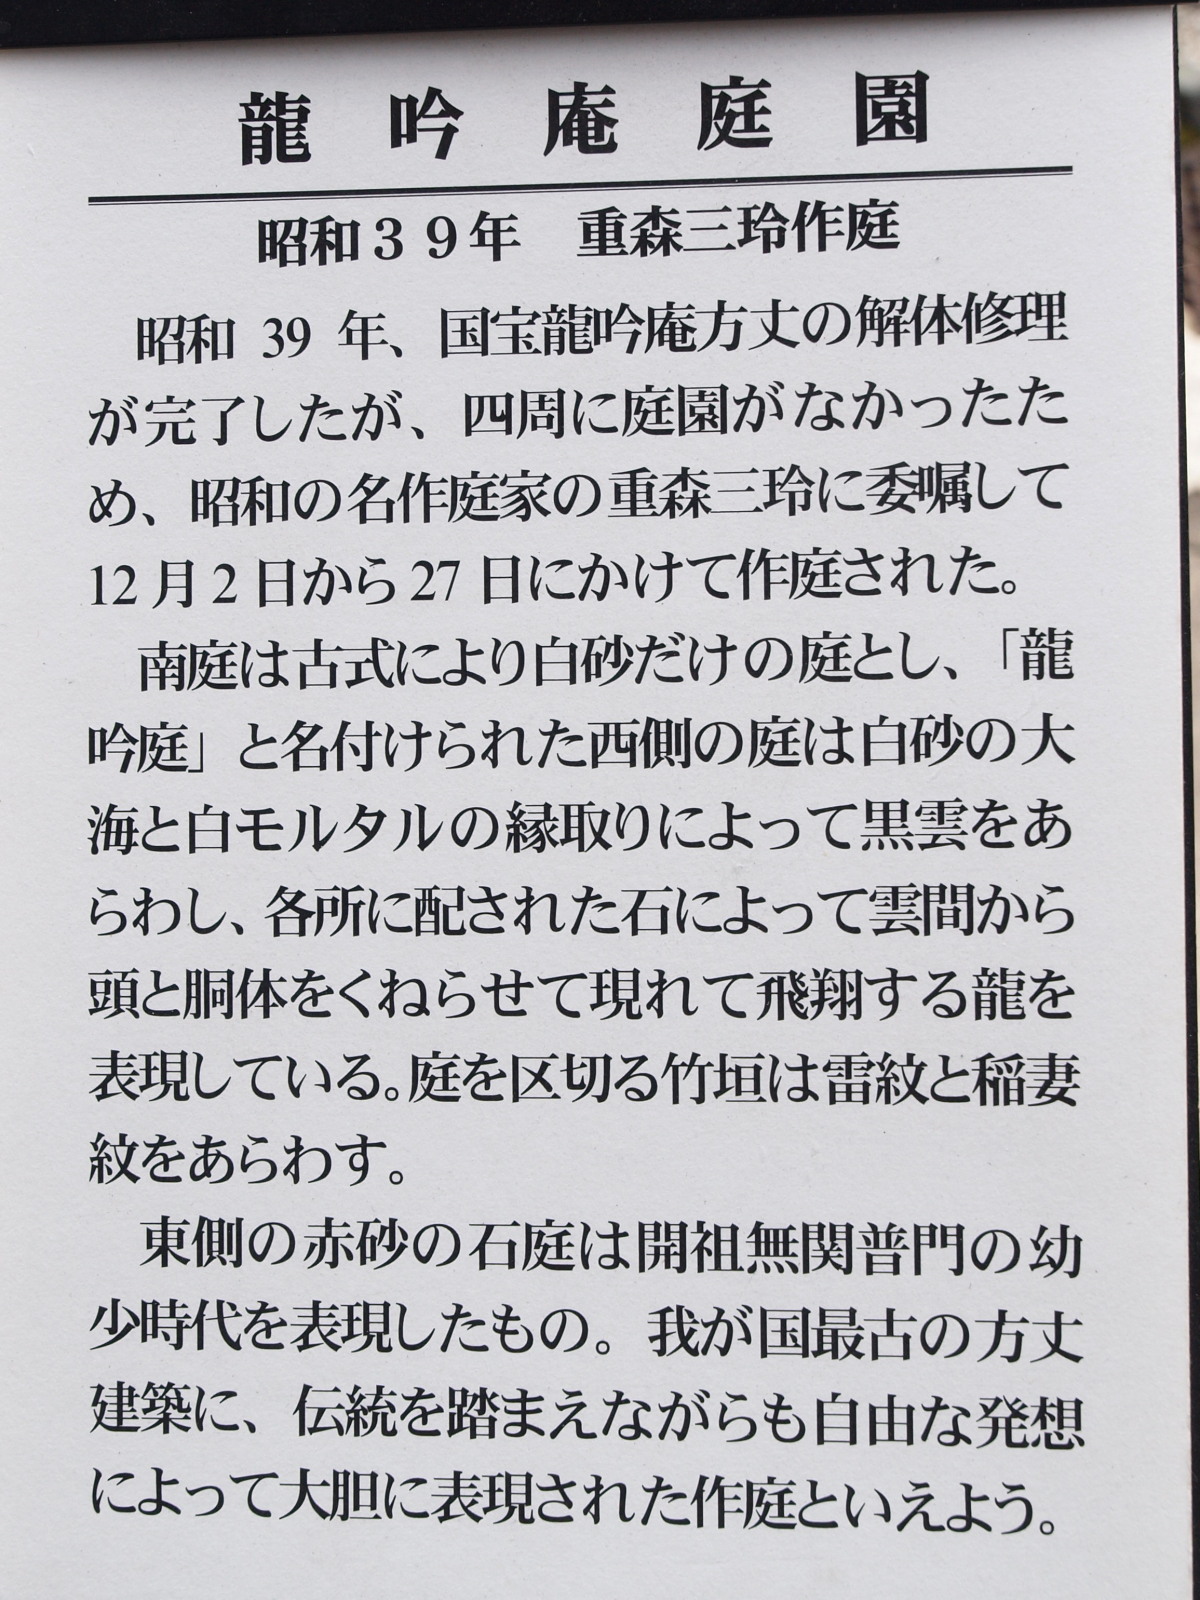 龍吟庵庭園
昭和39年　重森三玲作庭
昭和 39 年、国宝龍吟庵方丈の解体修理
が完了したが、四周に庭園がなかったた
め、昭和の名作庭家の重森三玲に委嘱して
12月2日から27日にかけて作庭された。
南庭は古式により白砂だけの庭とし、「龍
吟庭」と名付けられた西側の庭は白砂の大
海と白モルタルの縁取りによって黒雲をあ
らわし、各所に配された石によって雲間から
頭と胴体をくねらせて現れて飛翔する龍を
表現している。庭を区切る竹垣は雷紋と稲妻
紋をあらわす。
東側の赤砂の石庭は開祖無関普門の幼
少時代を表現したもの。我が国最古の方丈
建築に、伝統を踏まえながらも自由な発想
によって大胆に表現された作庭といえよう。